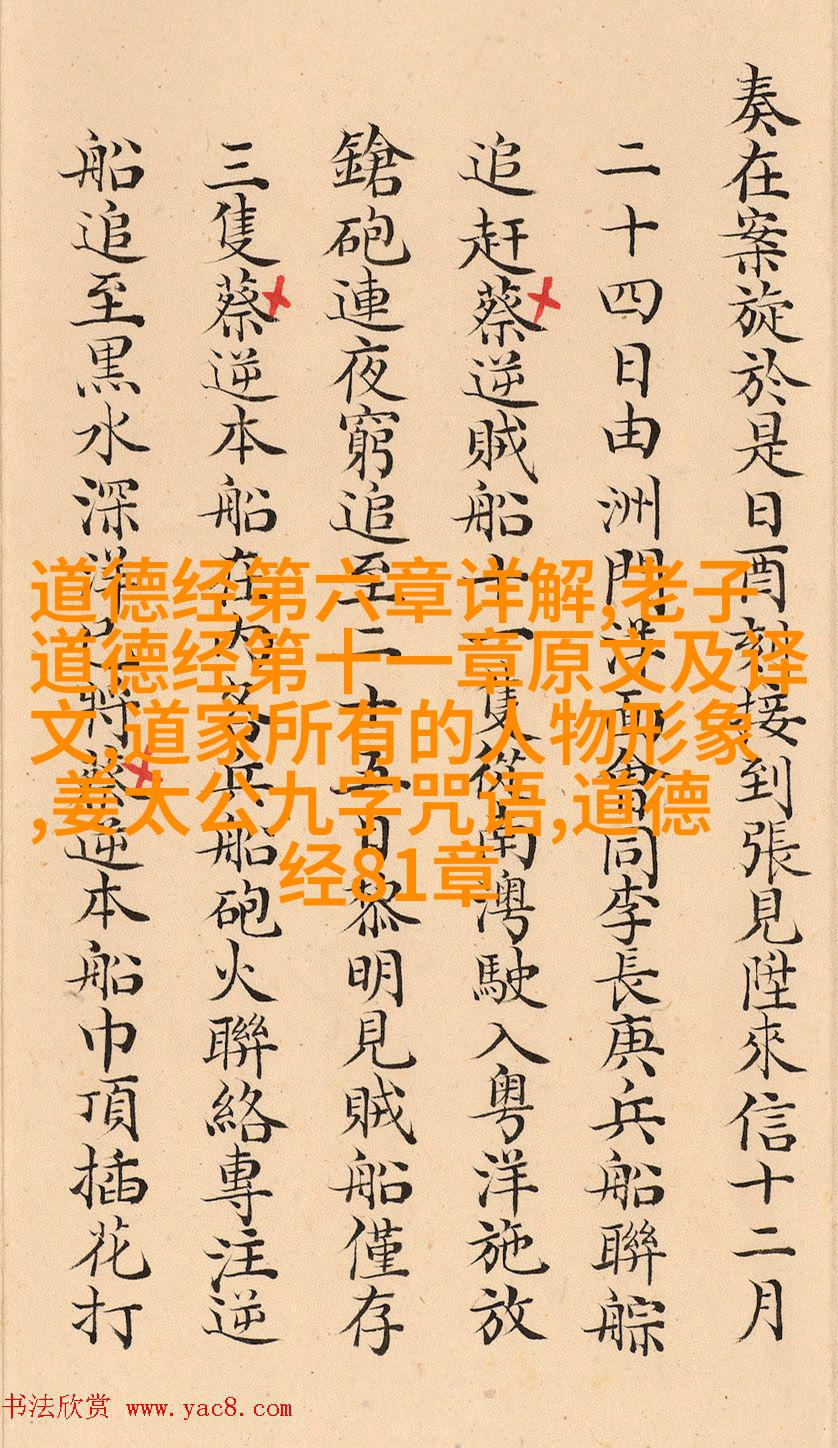 奏在案旋於是日酉刻接到張見陞來信十二月
二十四日由洲門洋面會同李長庚兵船聯䑸
追赶蔡逆賊船十一隻從南澳駛入粵洋施放
鎗砲連夜窮追至二十五日黎明見賊船僅存
三隻蔡逆本船在內各兵船砲火聯絡專注逆
船追至黒水深洋已將蔡逆本船巾頂插花打
道德经第六章详解,老子
道德经第十一章原文及译
文,道家所有的人物形象
,姜太公九字咒语,道德
经81章
书法欣赏 www.yac8.com